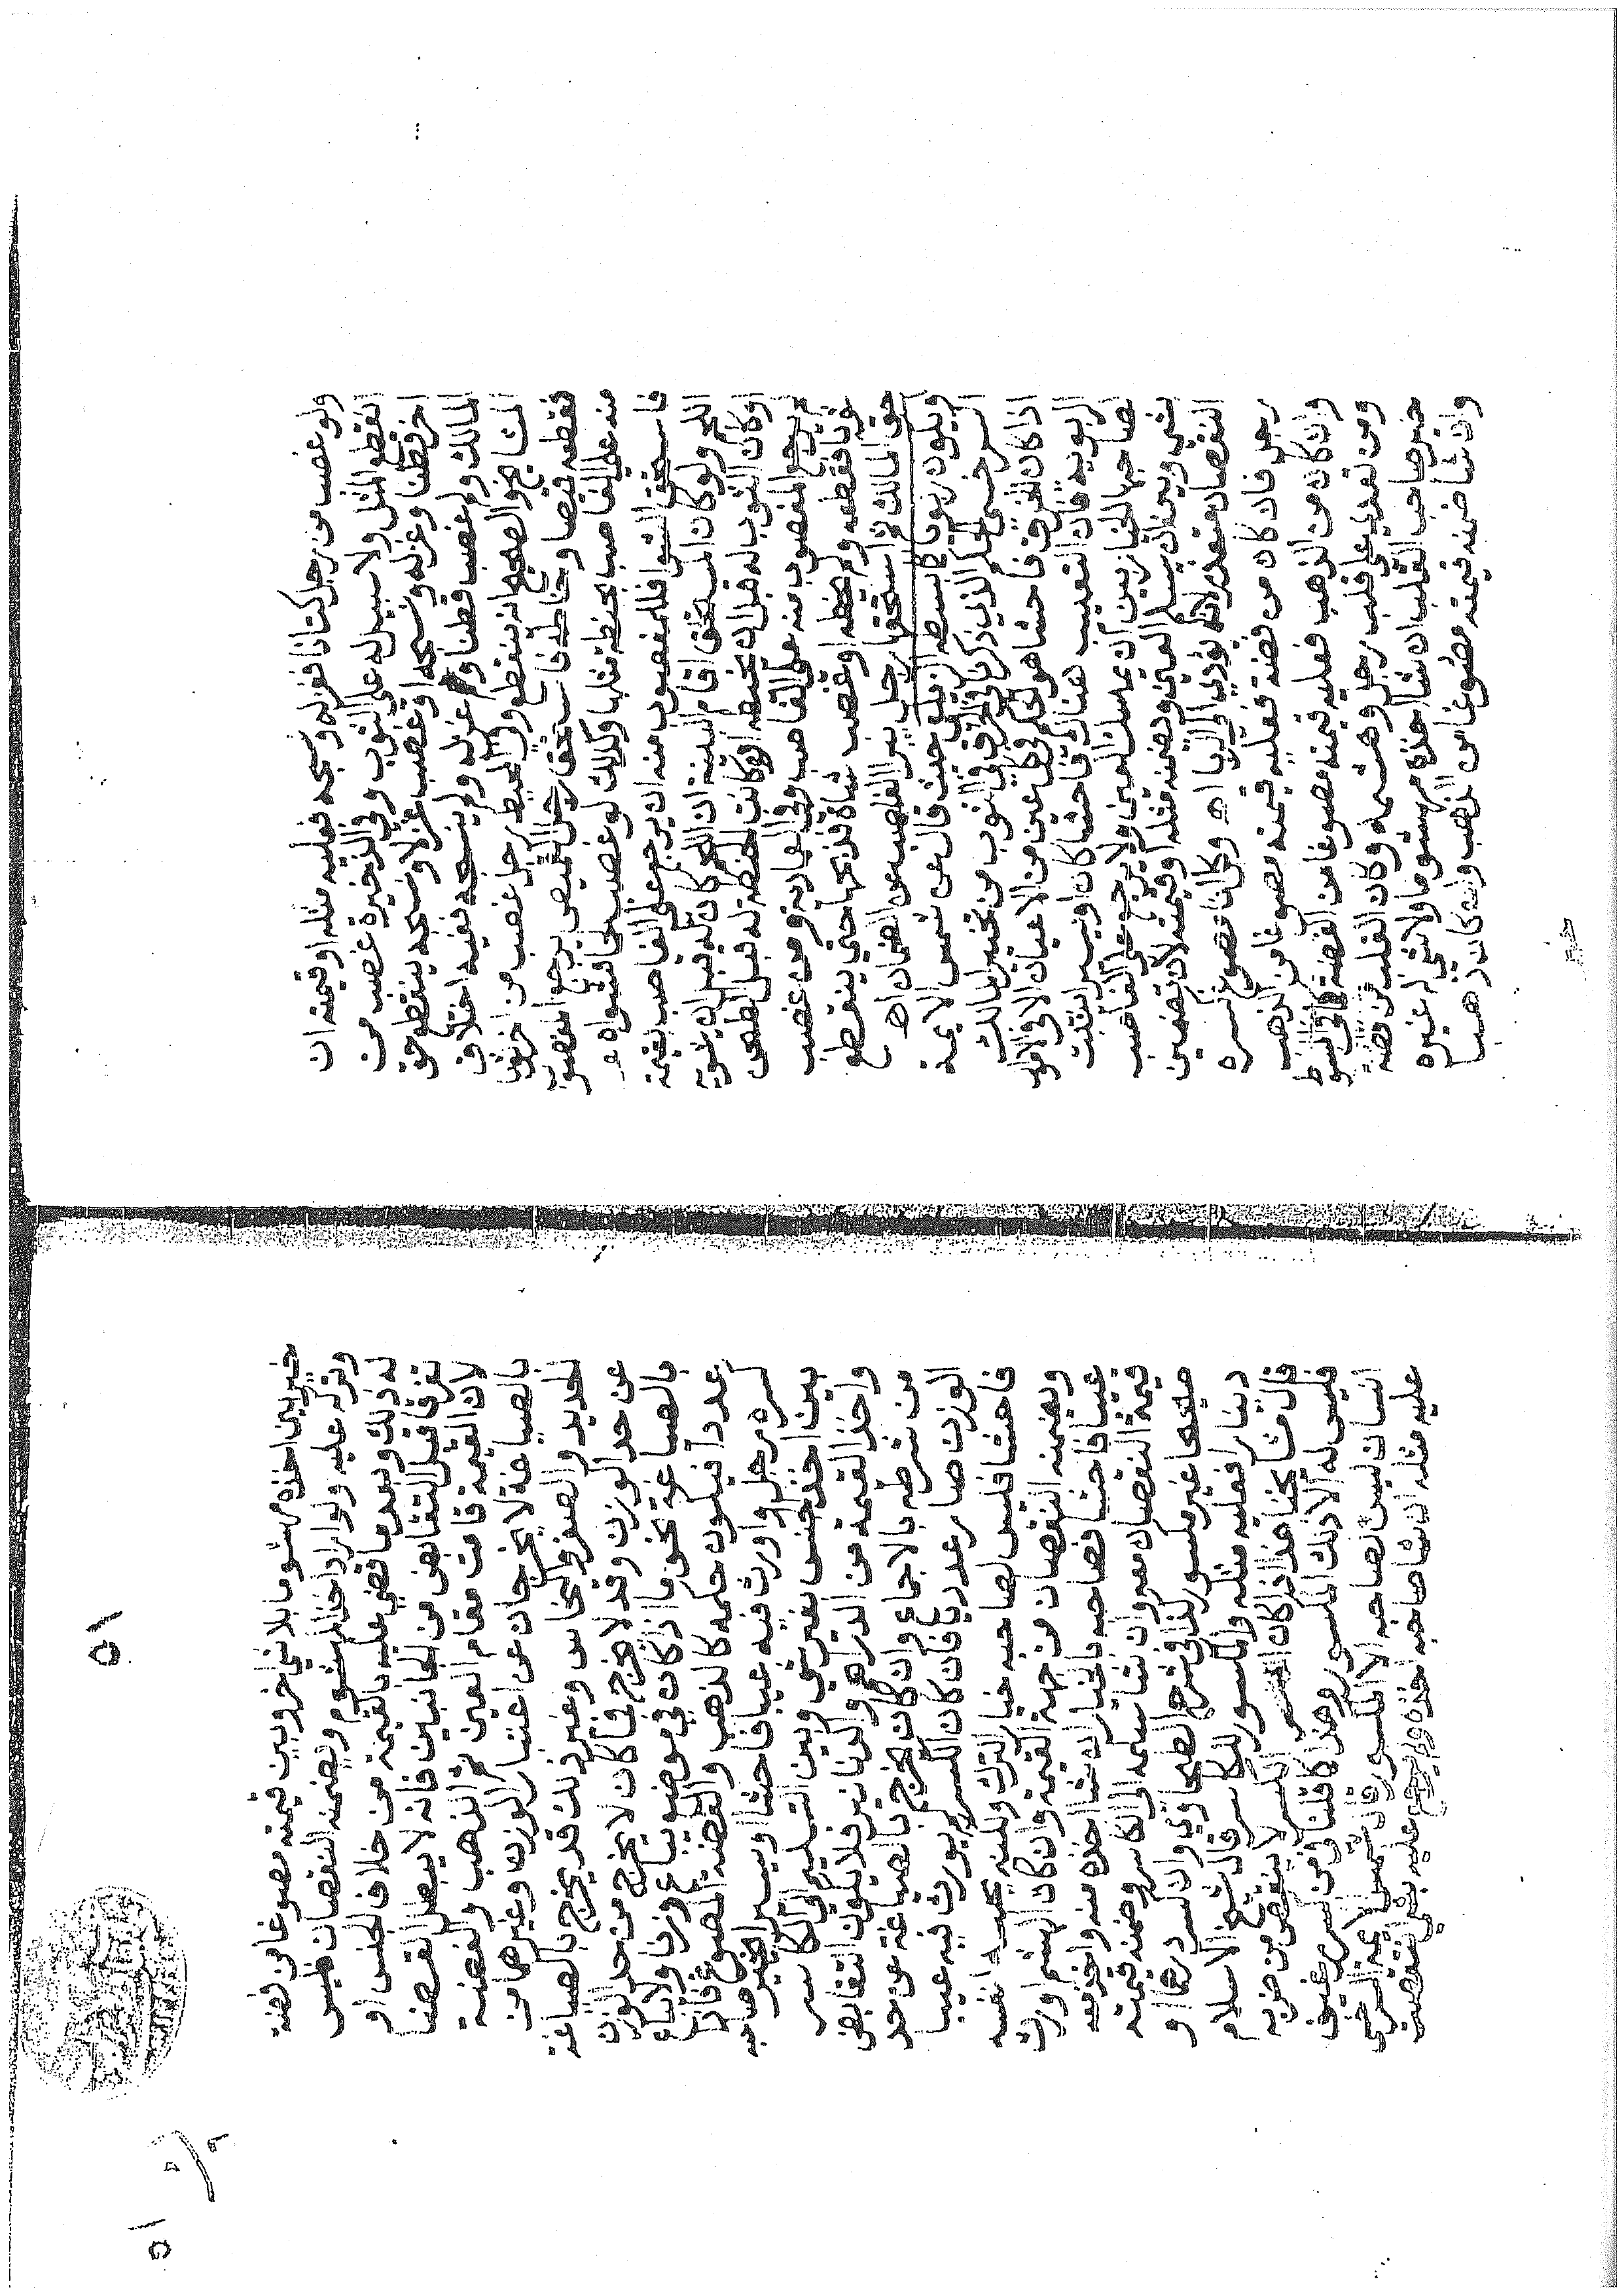 ولو غصب من رجل كتانا فغزله ونسجه فعليه مثله او قيمته ان
انقطع المثل ولا سبيل له على الثوب وفي الذخيرة غصب من
اخر قطنا وغزله ونسجه او غصب غزلا ونسجه ينقطع حق
المالك ولو غصب قطنا وغزله ولم ينسجه ففيه اختلاف
المشايخ والصحيح انه ينقطع وفي المحيط رجل غصب من اخر ثوبا
فقطعه قميصا وخاطه فاستحق رجل القميص يرجع المغصوب
منه على الغاصب بحنطة مثلها وكذلك لو غصب لحما فشواه
فاستحق الشوا فللمغصوب منه ان يرجع على الغاصب بقيمة
اللحم ولو كان المستحق اقام البينة ان اللحم كان له قبل ان يشويه
او كان الثوب له قبل ان يخيطه او كانت الحنطة له قبل الطحن
لا يرجع المغصوب منه على الغاصب وفي العمادية ومن غصب
ثوبا فقطعه ولم يخطه او غصب شاة فذبحها حتى ينقطع
حق المالك ثم استحقها رجل يبرا الغاصب عن الضمان اه
ويكون ربويا كما بسطه الزيلعي حيث قال عن شمس الايمة
السرخسي الحكم الذي ذكرنا في الخرق في الثوب من تخيير المالك
اذا كان الخرق فاحشا هو الحكم في كل عين من الاعيان الا في الاموال
الربوية فان التعييب هناك فاحشا كان او يسيرا يثبت
لصاحبها الخيار بين ان يمسك العين ولا يرجع على الغاصب
بشي وبين ان يسلم العين ويضمنه مثله او قيمته لان تضمين
النقصان متعذر لانه يودي الى الربا اه وكل انا مصوغ كسره
رجل فان كان من فضة فعليه قيمته مصوغا من الذهب
وان كان من الذهب فعليه قيمته مصوغا من الفضة كما في المبسوط
ومن تعدى على قلب رجل وهشمه وكان القلب من فضة
خير صاحب القلب ان شا اخذه مهشوما ولا شي له غيره
وان شا ضمنه قيمته مصوغا من الذهب وان كان ذهبا
٥١
خير بين اخذه مهشوما بلا شي اخر وبين قيمته مصوغا من فضة
وتركه عليه ولو اراد اخذ المهشوم ويضمنه النقصان فليس
له ذلك وبعدما قضي عليه بالقيمة من خلاف الجنس او
تفرقا قبل التقابض من الجانبين فانه لا يبطل القضا
لان القيمة قامت مقام العين ثم الذهب والفضة
بالصياغة لا يخرجان عن اعتبار الوزن وغيرهما من
الحديد والصفر والنحاس وغير ذلك قد يخرج بالصياغة
عن حد الوزن وقد لا يخرج فما كان لا يخرج من حد الوزن
بالصياغة نحو ما اذا كان في موضع يباع وزنا ولا يباع
عددا فيكون حكمه كالذهب والفضة المصوغ فاذا
كسره رجل واورث فيه عيبا فاحشا او يسيرا خير صاحبه
بين اخذ حبس بغير شي وبين التسليم الى الكاسر
واخذ القيمة من الدراهم والدنانير فلا يكون التقابض
من شرطه بالاجماع وان كان يخرج بالصياغة عن حد
الوزن صار عدديا فان كان الكسر لم يورث فيه عيبا
فاحشا فليس لصاحبه خيار الترك ولكنه يحبسه لنفسه
ويضمنه النقصان من جهة القيمة وان كان الهشم اورث
عيبا فاحشا فصاحبه بالخيار ان شا اخذه منه واخذ معه
قيمة النقصان معه وان شا سلمه الى الكاسر وضمنه قيمته
صحيحا غير مكسور كذا في شرح الطحاوي وان كسر درهما او
دينارا فعليه مثله والمكسور للكاسر قال شيخ الاسلام
قال مشايخنا هذا اذا كان الكسر لا ينقص من ضربه
فليس له الا ذلك المكسور وهذا كما قلنا في من كسر رغيف
انسان ليس لصاحبه الا المكسور وقال شمس الايمة السرخسي
عليه مثله ان شا صاحبه اخذه ولا يرجع عليه بشي